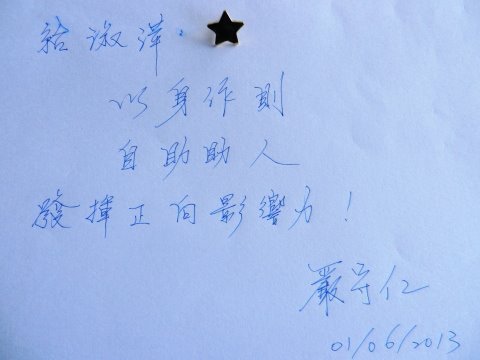 給淑萍：
以身作則
自助助人
發揮正向影響力！
嚴守仁
01/06/2013